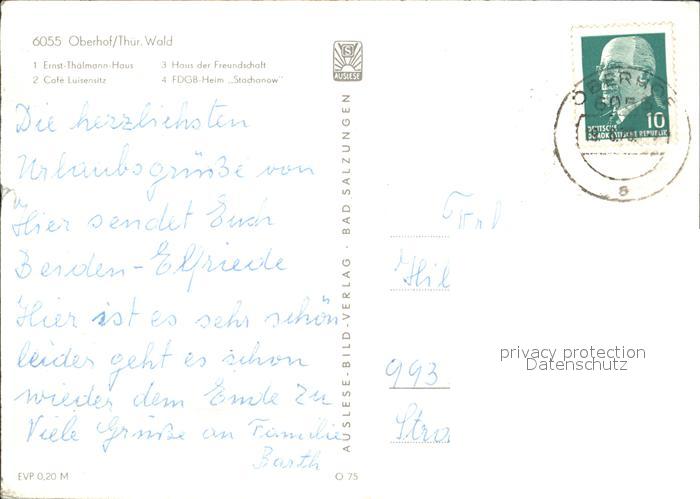 6055 Oberhof/Thür. Wald
1 Ernst-Thälmann-Haus 3 Haus der Freundschaft
2 Café Luisensitz 4 FDGB-Heim „Stachanow"
S
AUSLESE
Die herzlichsten
Urlaubsgrüße von
Hier sendet Euch
Beiden - Elfriede
Hier ist es sehr schön
leider geht es schon
wieder dem Ende zu
Viele Grüße an Familie
Barth
EVP 0,20 M
AUSLESE-BILD-VERLAG · BAD SALZUNGEN
O 75
OBERHOF
6055
10
DEUTSCHE
DEMOKRATISCHE REPUBLIK
a
Hil
993
Stra
privacy protection
Datenschutz